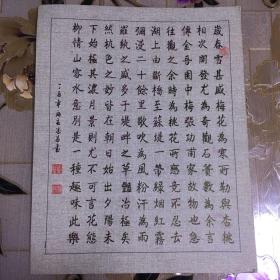 歲春雪甚盛梅花為寒所勒與杏桃
相次開發尤為奇觀石簣數為余言
傅金吾園中梅張功甫家故物也急
往觀之余時為桃花所戀竟不忍去
湖上由斷橋至蘇堤一帶綠烟紅霧
彌漫二十餘里歌吹為風粉汗為雨
羅紈之盛多于堤畔之草豔冶極矣
然杭色之妙皆在朝日始出夕陽未
下始極其濃月景則尤不可言花態
柳情山容水意別是一種趣味此樂
丁酉年書